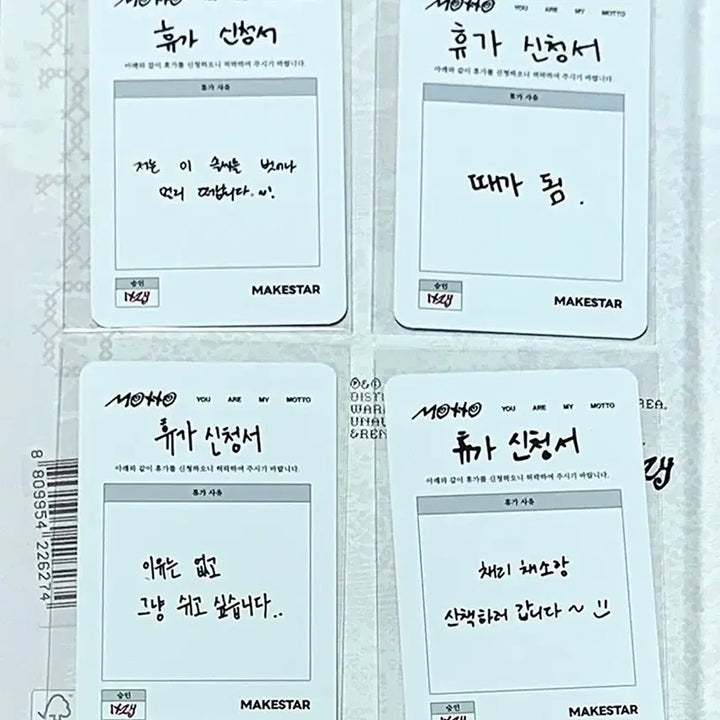 MOTTO YOU ARE MY MOTTO
휴가 신청서
아래와 같이 휴가를 신청하오니 허락하여 주시기 바랍니다.
휴가 사유
저는 이 솔씨를 벗어나
멀리 떠납니다.~!
승인
ITZY
MAKESTAR
MOTTO YOU ARE MY MOTTO
휴가 신청서
아래와 같이 휴가를 신청하오니 허락하여 주시기 바랍니다.
휴가 사유
때가 됨.
승인
ITZY
MAKESTAR
MOTTO YOU ARE MY MOTTO
휴가 신청서
아래와 같이 휴가를 신청하오니 허락하여 주시기 바랍니다.
휴가 사유
이유는 없고
그냥 쉬고 싶습니다..
승인
ITZY
MAKESTAR
MOTTO YOU ARE MY MOTTO
휴가 신청서
아래와 같이 휴가를 신청하오니 허락하여 주시기 바랍니다.
휴가 사유
채리 채소랑
산책하러 갑니다~
승인
ITZY
MAKESTAR
8 809954 226274